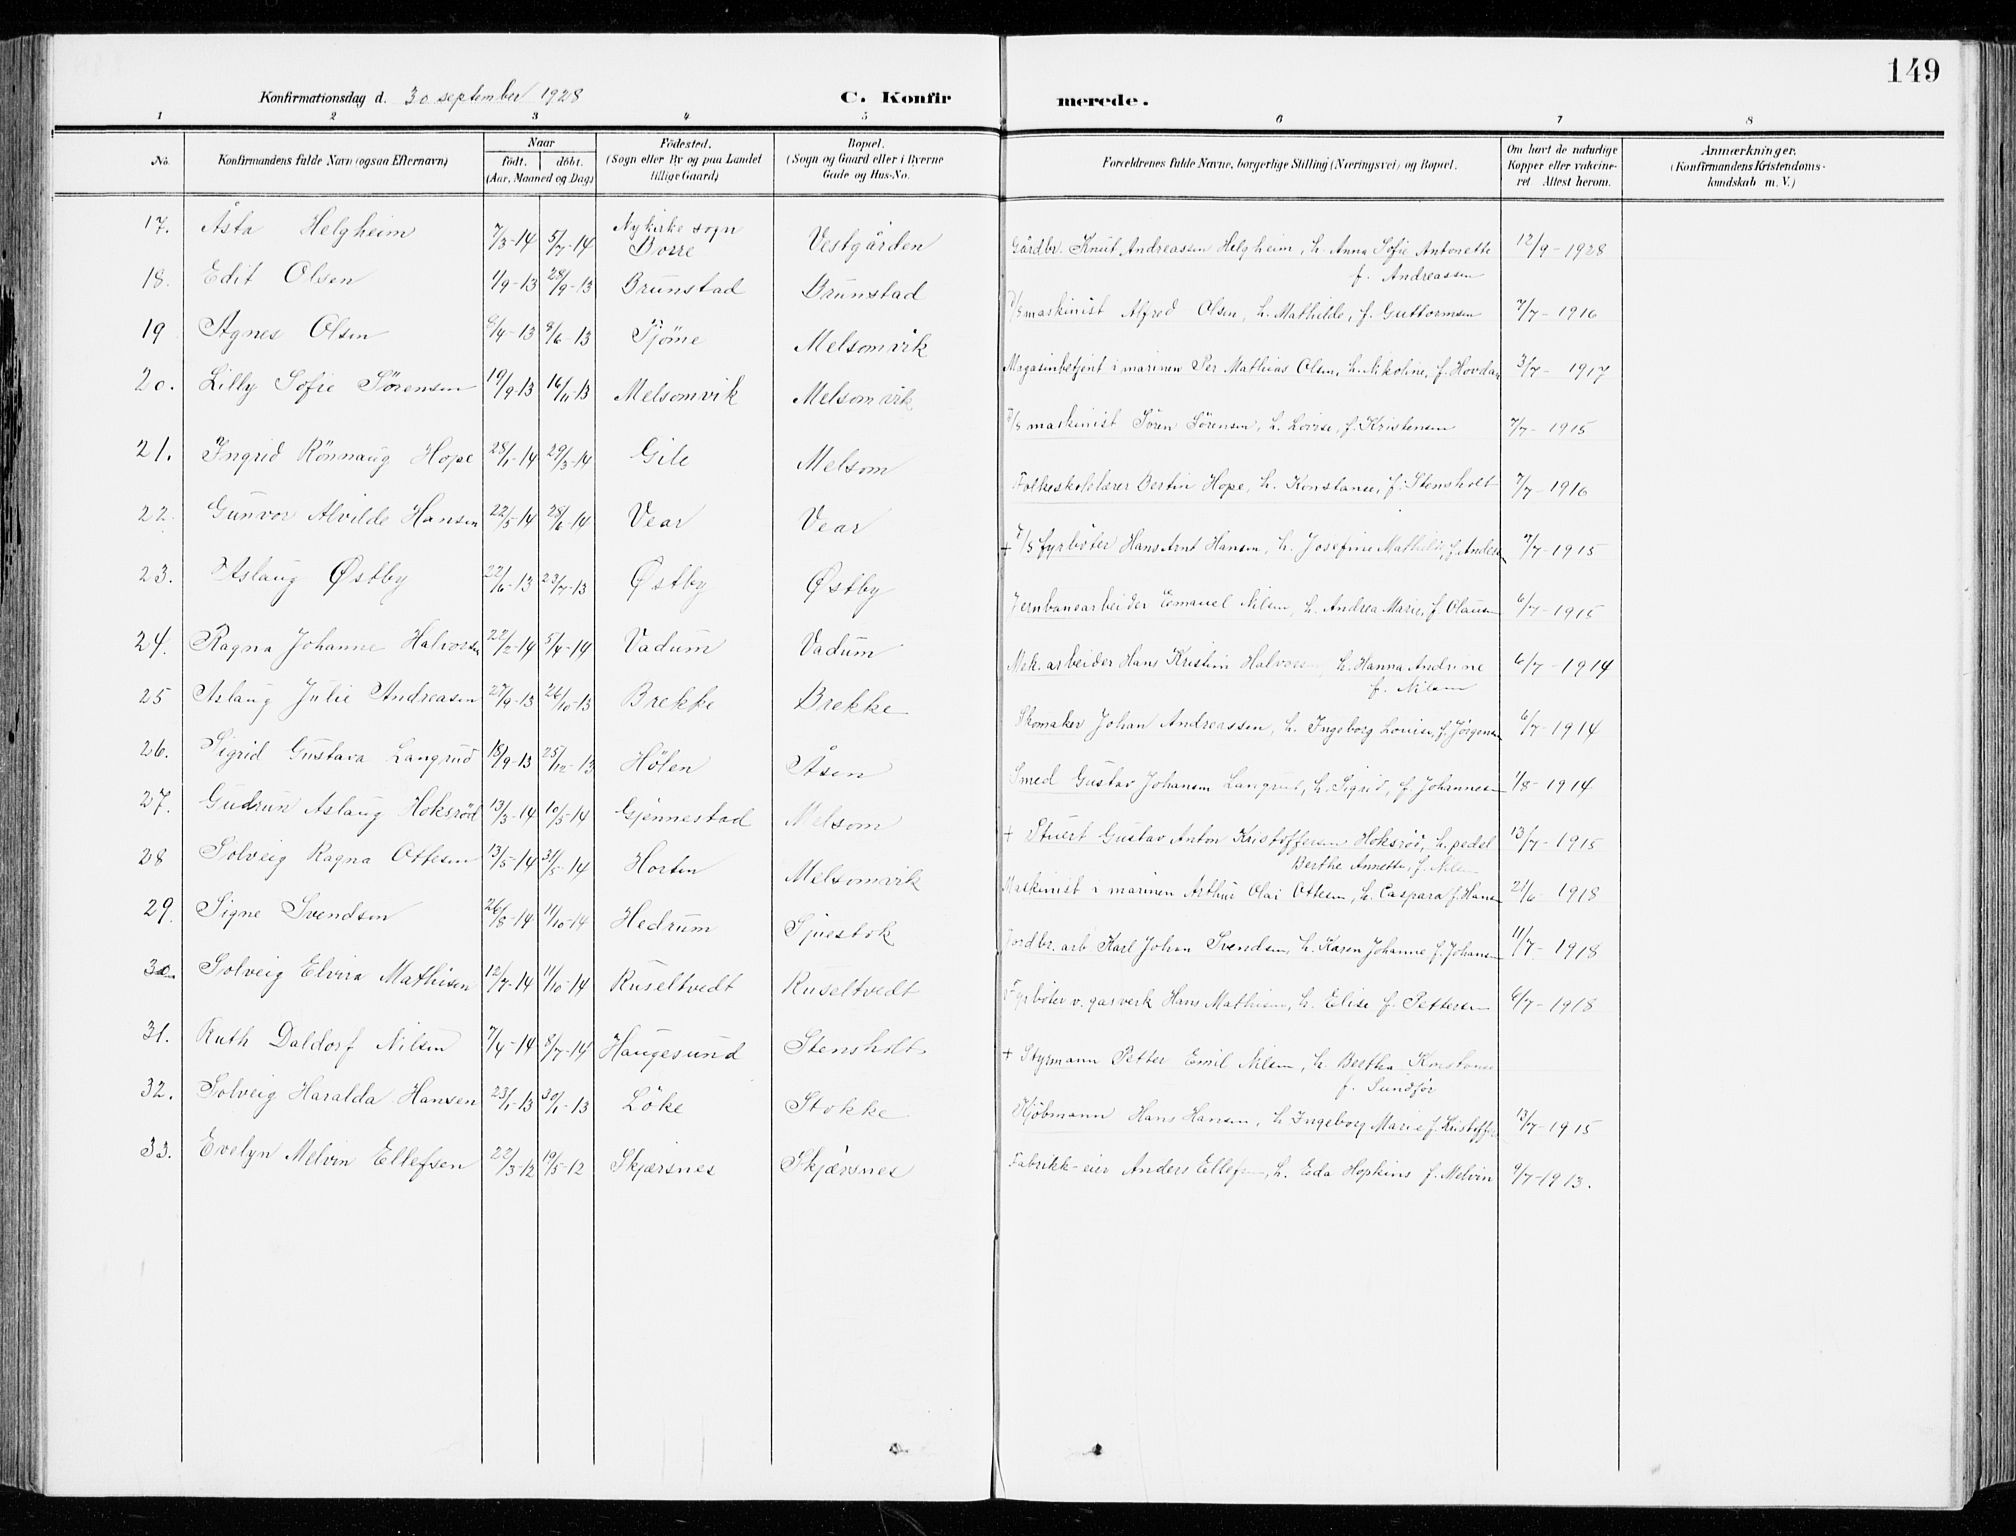 149
Konfirmationsdag d. 30 september 1928 C. Konfir merede.
1 2 3 4 5 6 7 8
No. Konfirmandens fulde Navn (ogsaa Efternavn) Naar födt. döbt. (Aar, Maaned og Dag) Födested. (Sogn eller By og paa Landet tillige Gaard) Bopæl. (Sogn og Gaard eller i Byerne Gade og Hus-No. Forældrenes fulde Navne, borgerlige Stilling (Næringsvei) og Bopæl. Om havt de naturlige Kopper eller vakcineret Attest herom. Anmærkninger. (Konfirmandens Kristendomskundskab m. V.)
17. Åsta Helgheim 7/3-14 5/7-14 Nykirke sogn Borre Vestgården Gårdbr. Knut Andreassen Helgheim, h. Anna Sofie Antonette f. Andreassen 12/9-1928
18. Edit Olsen 1/9-13 28/9-13 Brunstad Brunstad D/S maskinist Alfred Olsen, h. Mathilde, f. Guttormsen 7/7-1916
19 Agnes Olsen 6/4-13 8/6-13 Tjöme Melsomvik Magasinbetjent i marinen Per Mathias Olsen, h. Nikoline, f. Hovdan 3/7-1917
20. Lilly Sofie Sörensen 19/9-13 16/11-13 Melsomvik Melsomvik D/S maskinist Sören Sörensen, h. Lovise, f. Kristensen 7/7-1915
21. Ingrid Rönnaug Hope 28/1-14 29/3-14 Gile Melsom Folkeskolelærer Bertin Hope, h. Konstanse, f. Stensholt 7/7-1916
22. Gunvor Alvilde Hansen 22/5-14 28/6-14 Vear Vear + D/S fyrböter Hans Arnt Hansen, h. Josefine Mathilde, f. Anders 7/7-1915
23. Aslaug Østby 22/6-13 23/7-13 Østby Østby Jernbanearbeider Emanuel Nilsen, h. Andrea Marie, f. Clausen 6/7-1915
24. Ragna Johanne Halvorsen 22/2-14 5/4-14 Vadum Vadum Mek. arbeider Hans Kristian Halvorsen, h. Hanna Andrine f. Nilsen 6/7-1914
25 Aslaug Julie Andreasen 27/9-13 26/10-13 Brekke Brekke Skomaker Johan Andreassen, h. Ingeborg Louise, f. Jörgensen 6/7-1914
26. Sigrid Gustava Langrud 18/9-13 25/12-13 Hölen Åsen Smed Gustav Johansen Langrud, h. Sigrid, f. Johannesen 1/8-1914
27. Gudrun Aslaug Hoksröd 13/3-14 10/5-14 Gjennestad Melsom + Stuert Gustav Anton Kristoffersen Hoksröd, h. pedel Berthe Annette, f. Nilsen 13/7-1915
28 Solveig Ragna Ottesen 13/5-14 31/5-14 Horten Melsomvik Maskinist i marinen Arthur Olai Ottesen, h. Caspara f. Hansen 21/6-1918
29. Signe Svendsen 26/8-14 11/10-14 Hedrum Tjuestok Jordbr. arb Karl Johan Svendsen, h. Karen Johanne f. Johansen 11/7-1918
30. Solveig Elvira Mathisen 12/7-14 11/10-14 Ruseltvedt Ruseltvedt Fyrböter v. gasverk Hans Mathisen, h. Elise f. Pettersen 6/7-1918
31. Ruth Daldorf Nilsen 7/4-14 8/7-14 Haugesund Stensholt + Styrmann Petter Emil Nilsen, h. Bertha f. Sundför
32. Solveig Haralda Hansen 23/1-13 30/1-13 Löke Stokke Kjöbmann Hans Hansen, h. Ingeborg Marie f. Kristoffer 13/7-1915
33. Evelyn Melvin Ellefsen 22/3-12 19/5-12 Skjærsnes Skjærsnes Fabrikk-eier Anders Ellefsen, h. Eda Hopkins f. Melvin 9/7-1913.